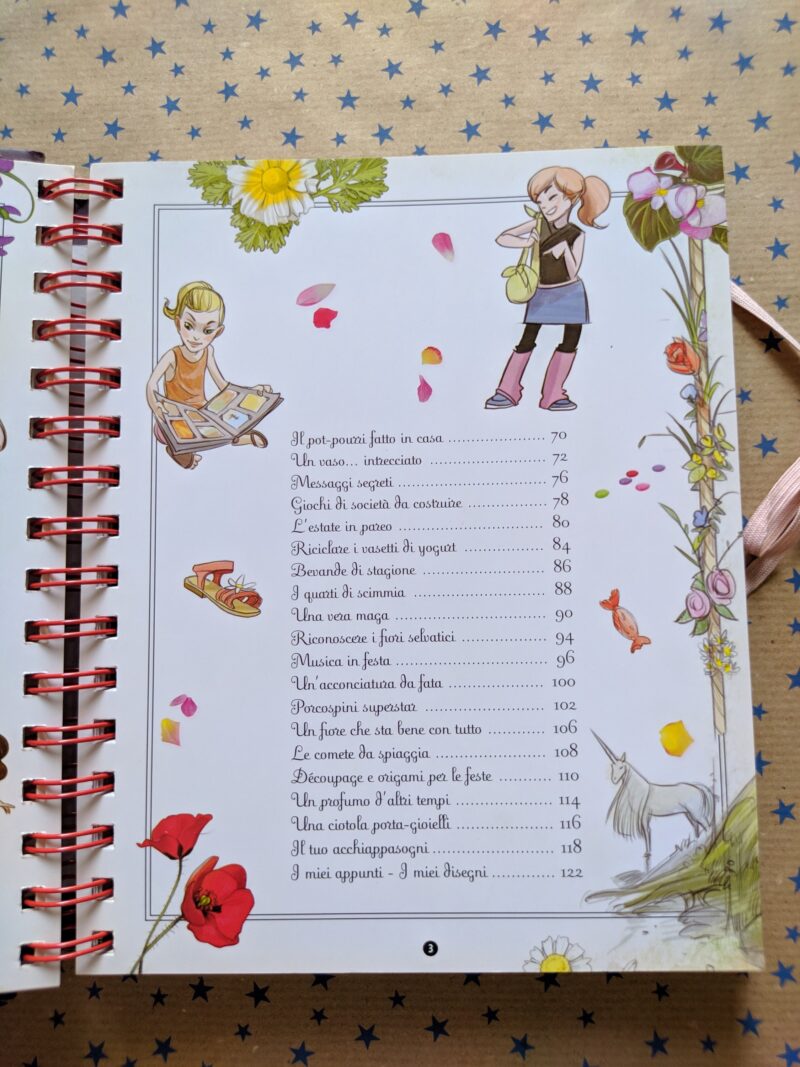 Il pot-pourri fatto in casa ...................... 70
Un vaso... intrecciato .......................... 72
Messaggi segreti ................................ 76
Giochi di società da costruire ................ 78
L'estate in pareo ................................ 80
Riciclare i vasetti di yogurt .................. 84
Bevande di stagione ............................ 86
I quarti di scimmia .............................. 88
Una vera maga .................................. 90
Riconoscere i fiori selvatici .................... 94
Musica in festa .................................. 96
Un'acconciatura da fata ...................... 100
Porcospini superstar .......................... 102
Un fiore che sta bene con tutto .............. 106
Le comete da spiaggia ........................ 108
Découpage e origami per le feste ............ 110
Un profumo d'altri tempi ...................... 114
Una ciotola porta-gioielli ...................... 116
Il tuo acchiappasogni .......................... 118
I miei appunti - I miei disegni .............. 122
3